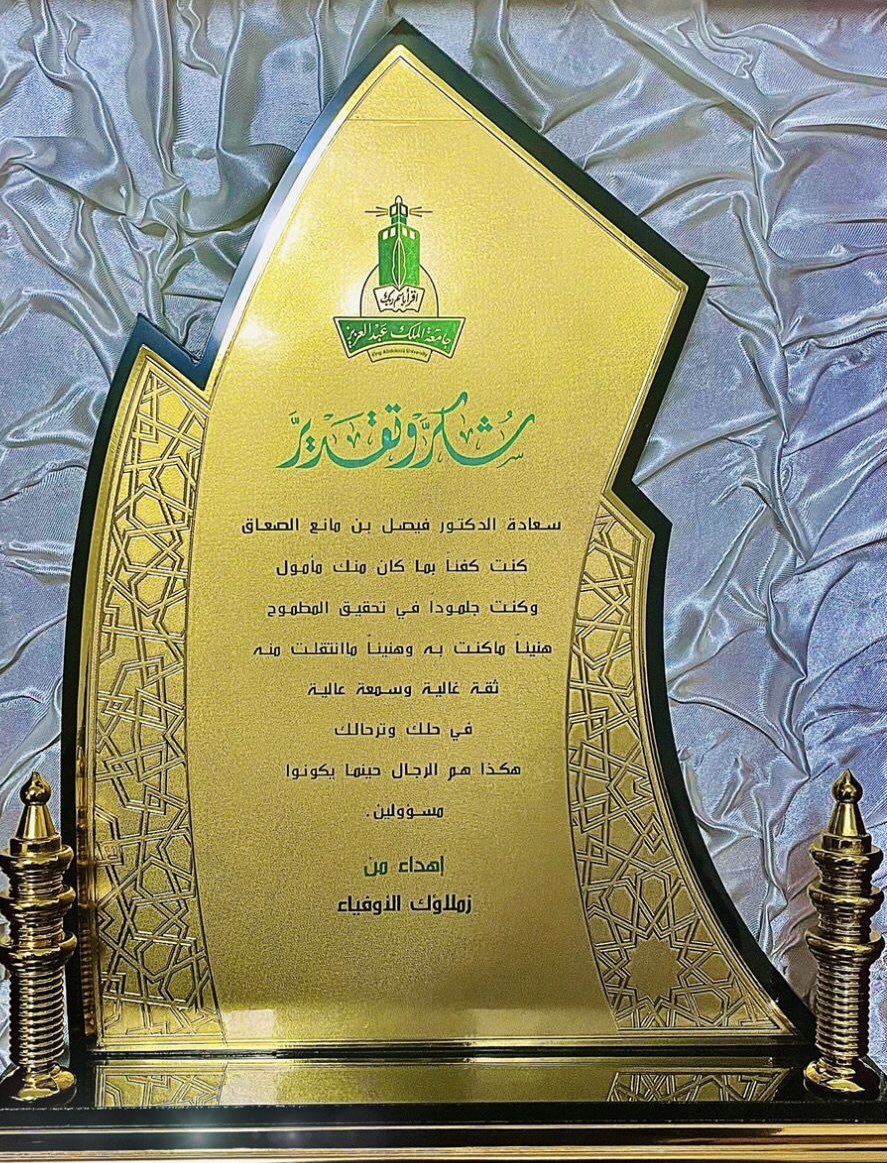 اقرأ باسم ربك
جامعة الملك عبد العزيز
King Abdulaziz University
شكر وتقدير
سعادة الدكتور فيصل بن مانع الصعاق
كنت كفئاً بما كان منك مأمول
وكنت جلموداً في تحقيق المطموح
هنيئاً ماكنت به وهنيئاً ماانتقلت منه
ثقة غالية وسمعة عالية
في حلك وترحالك
هكذا هم الرجال حينما يكونوا
مسؤولين.
إهداء من
زملاؤك الأوفياء